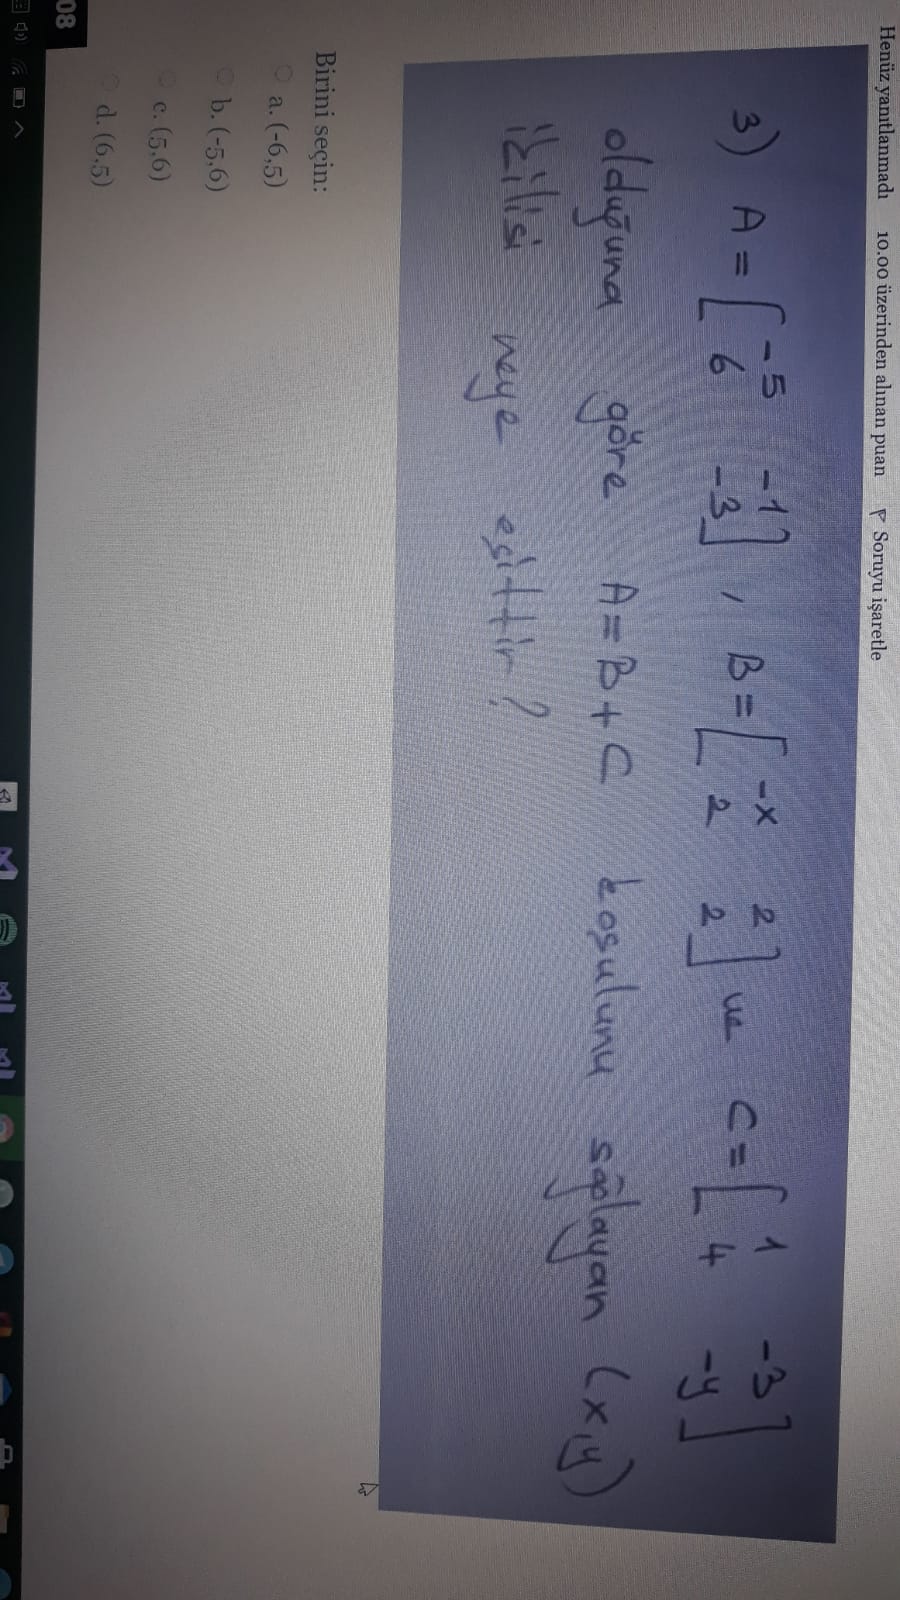 Henüz yanıtlanmadı 10.00 üzerinden alınan puan Soruyu işaretle
3) A = [ -5 -1 ] , B = [ -x 2 ] ve C = [ 1 -3 ]
[ 6 -3 ] [ 2 2 ] [ 4 -y ]
olduğuna göre A = B + C koşulunu sağlayan (x,y)
ikilisi neye eşittir?
Birini seçin:
a. (-6,5)
b. (-5,6)
c. (5,6)
d. (6,5)
08